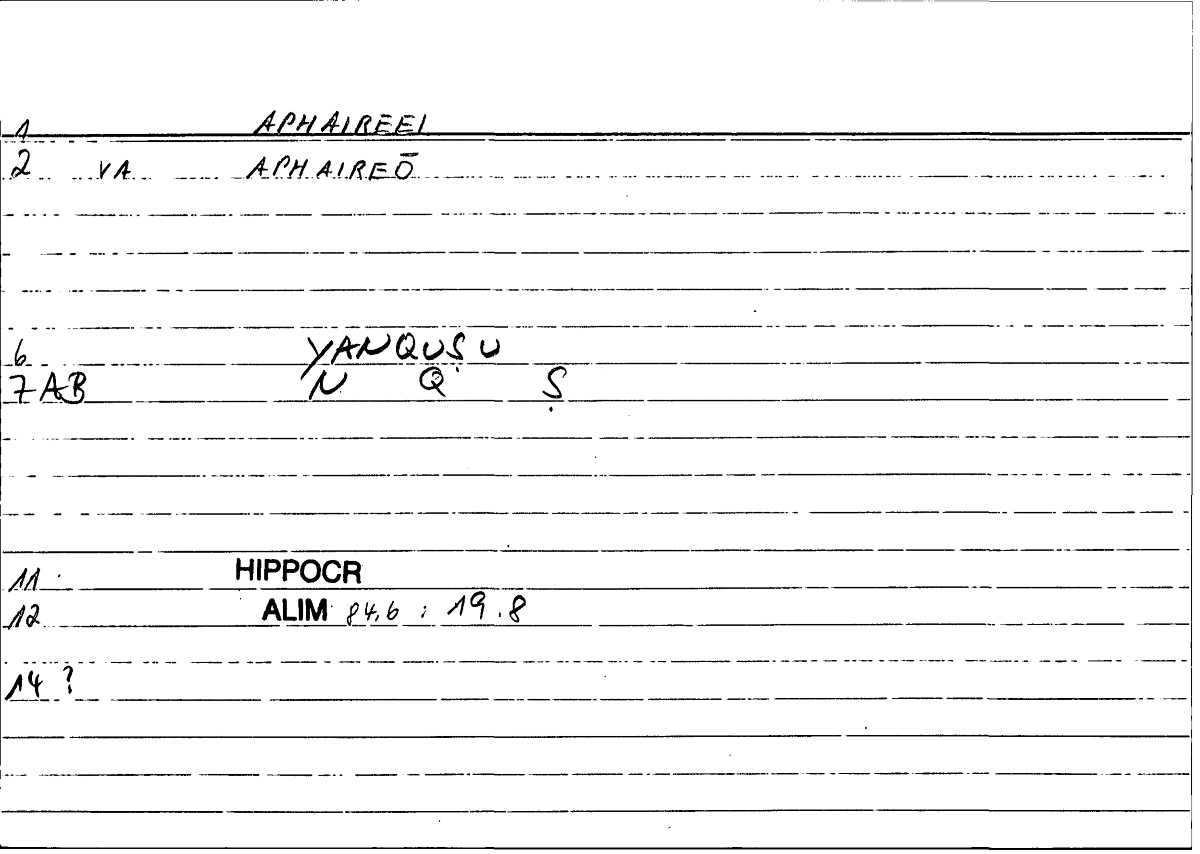 1 APHAIREEI
2 VA APHAIREŌ
6 YANQUṢU
7AB N Q Ṣ
11 HIPPOCR
12 ALIM 84,6 : 19.8
14 ?